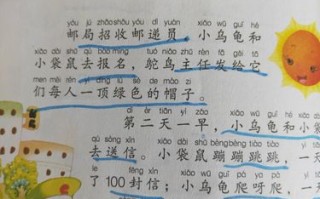 yóu jú zhāoshōu yóu dì yuán xiǎo wū guī hé
邮局招收邮递员，小乌龟和
xiǎo dài shǔ qù bào míng tuó niǎo zhǔ rèn fā gěi tā
小袋鼠去报名，鸵鸟主任发给它
men měi rén yì dǐng lǜ sè de mào zi
们每人一顶绿色的帽子。
dì èr tiān yì zǎo xiǎo wū guī hé xiǎo dài
第二天一早，小乌龟和小袋
qù sòng xìn xiǎo dài shǔ bèngbèng tiào tiào yì
去送信。小袋鼠蹦蹦跳跳，一天
le fēng xìn xiǎo wū guī pá ya pá
了100封信；小乌龟爬呀爬，一天